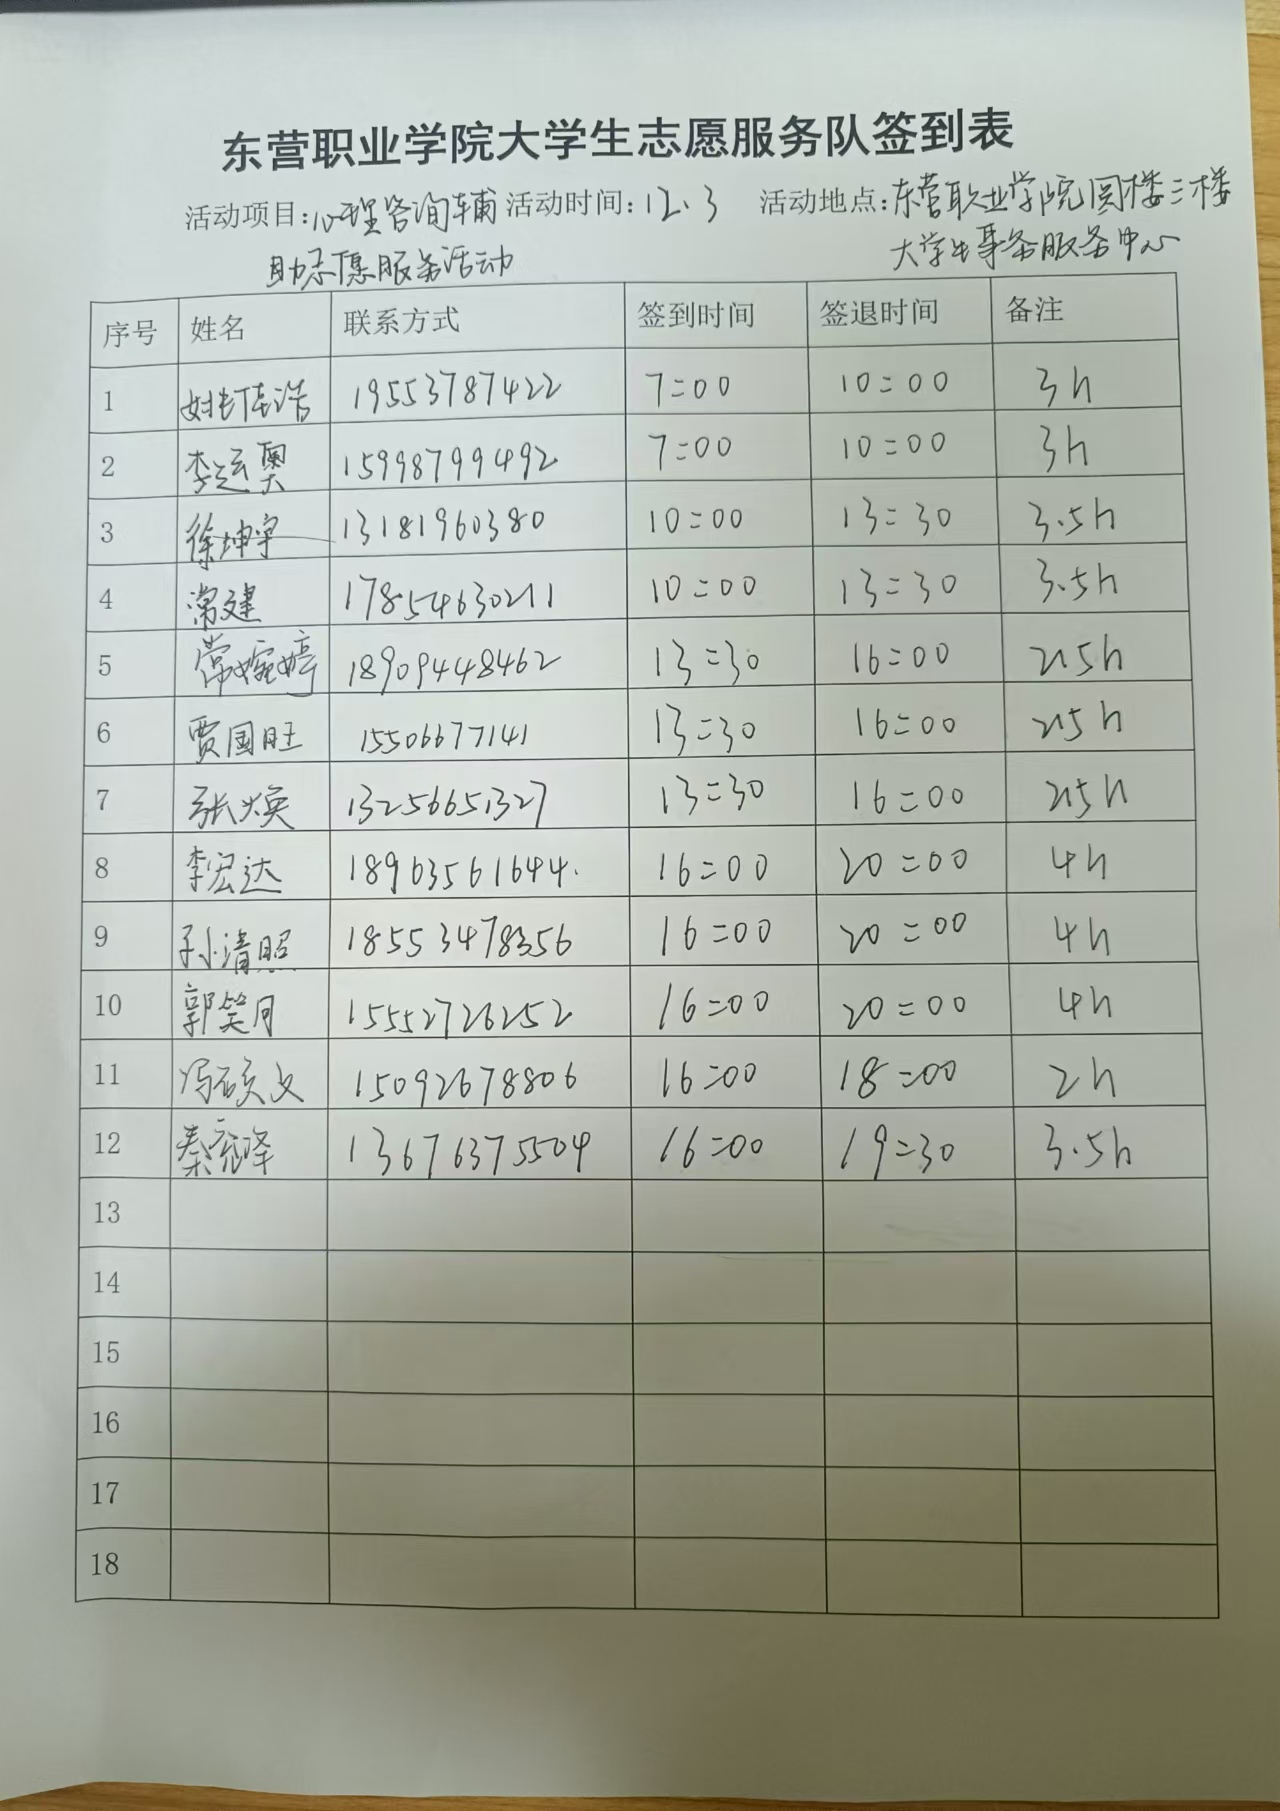 东营职业学院大学生志愿服务队签到表
活动项目:心理咨询辅 活动时间:12.3 活动地点:东营职业学院圆楼三楼
助志愿服务活动 大学生事务服务中心
序号 姓名 联系方式 签到时间 签退时间 备注
1 姚佳浩 19553787422 7:00 10:00 3h
2 李运奥 15998799492 7:00 10:00 3h
3 徐坤宇 13181960380 10:00 13:30 3.5h
4 常建 17854630211 10:00 13:30 3.5h
5 常婉婷 18909448462 13:30 16:00 2.5h
6 贾国旺 15506677141 13:30 16:00 2.5h
7 张焕 13256651327 13:30 16:00 2.5h
8 李宏达 18963561644. 16:00 20:00 4h
9 孙清照 18553478356 16:00 20:00 4h
10 郭笑月 15552726252 16:00 20:00 4h
11 冯硕文 15092678806 16:00 18:00 2h
12 13676375504 16:00 19:30 3.5h
13
14
15
16
17
18